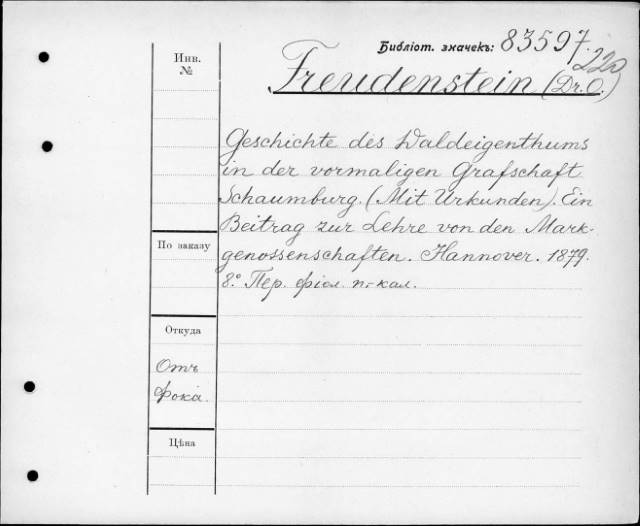 Библіот. значекъ: 83597.
220
Инв.
№
Freudenstein (Dr. O.)
Geschichte des Waldeigenthums
in der vormaligen Grafschaft
Schaumburg. (Mit Urkunden). Ein
Beitrag zur Lehre von den Mark-
genossenschaften. Hannover. 1879.
8º. Пер. фіол. п-кал.
По заказу
Откуда
Отъ
Фока.
Цѣна